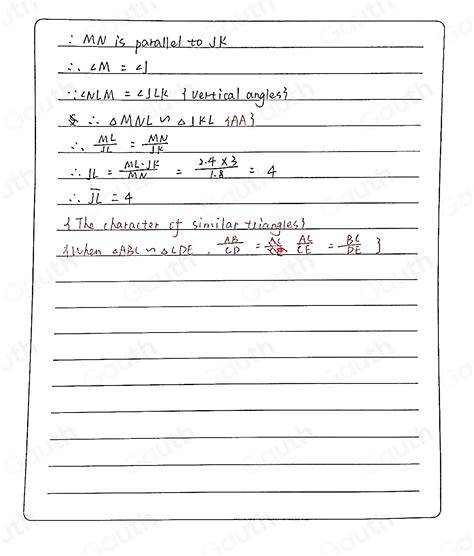 ∵ MN is parallel to JK
∴ ∠M = ∠J
∵ ∠NLM = ∠JLK {vertical angles}
∴ △MNL ∽ △JKL {AA}
∴ ML/JL = MN/JK
∴ JL = ML·JK/MN = 2.4×3/1.8 = 4
∴ JL = 4
{The character of similar triangles}
{When △ABC ∽ △CDE, AB/CD = AC/CE = BC/DE}
Gauth